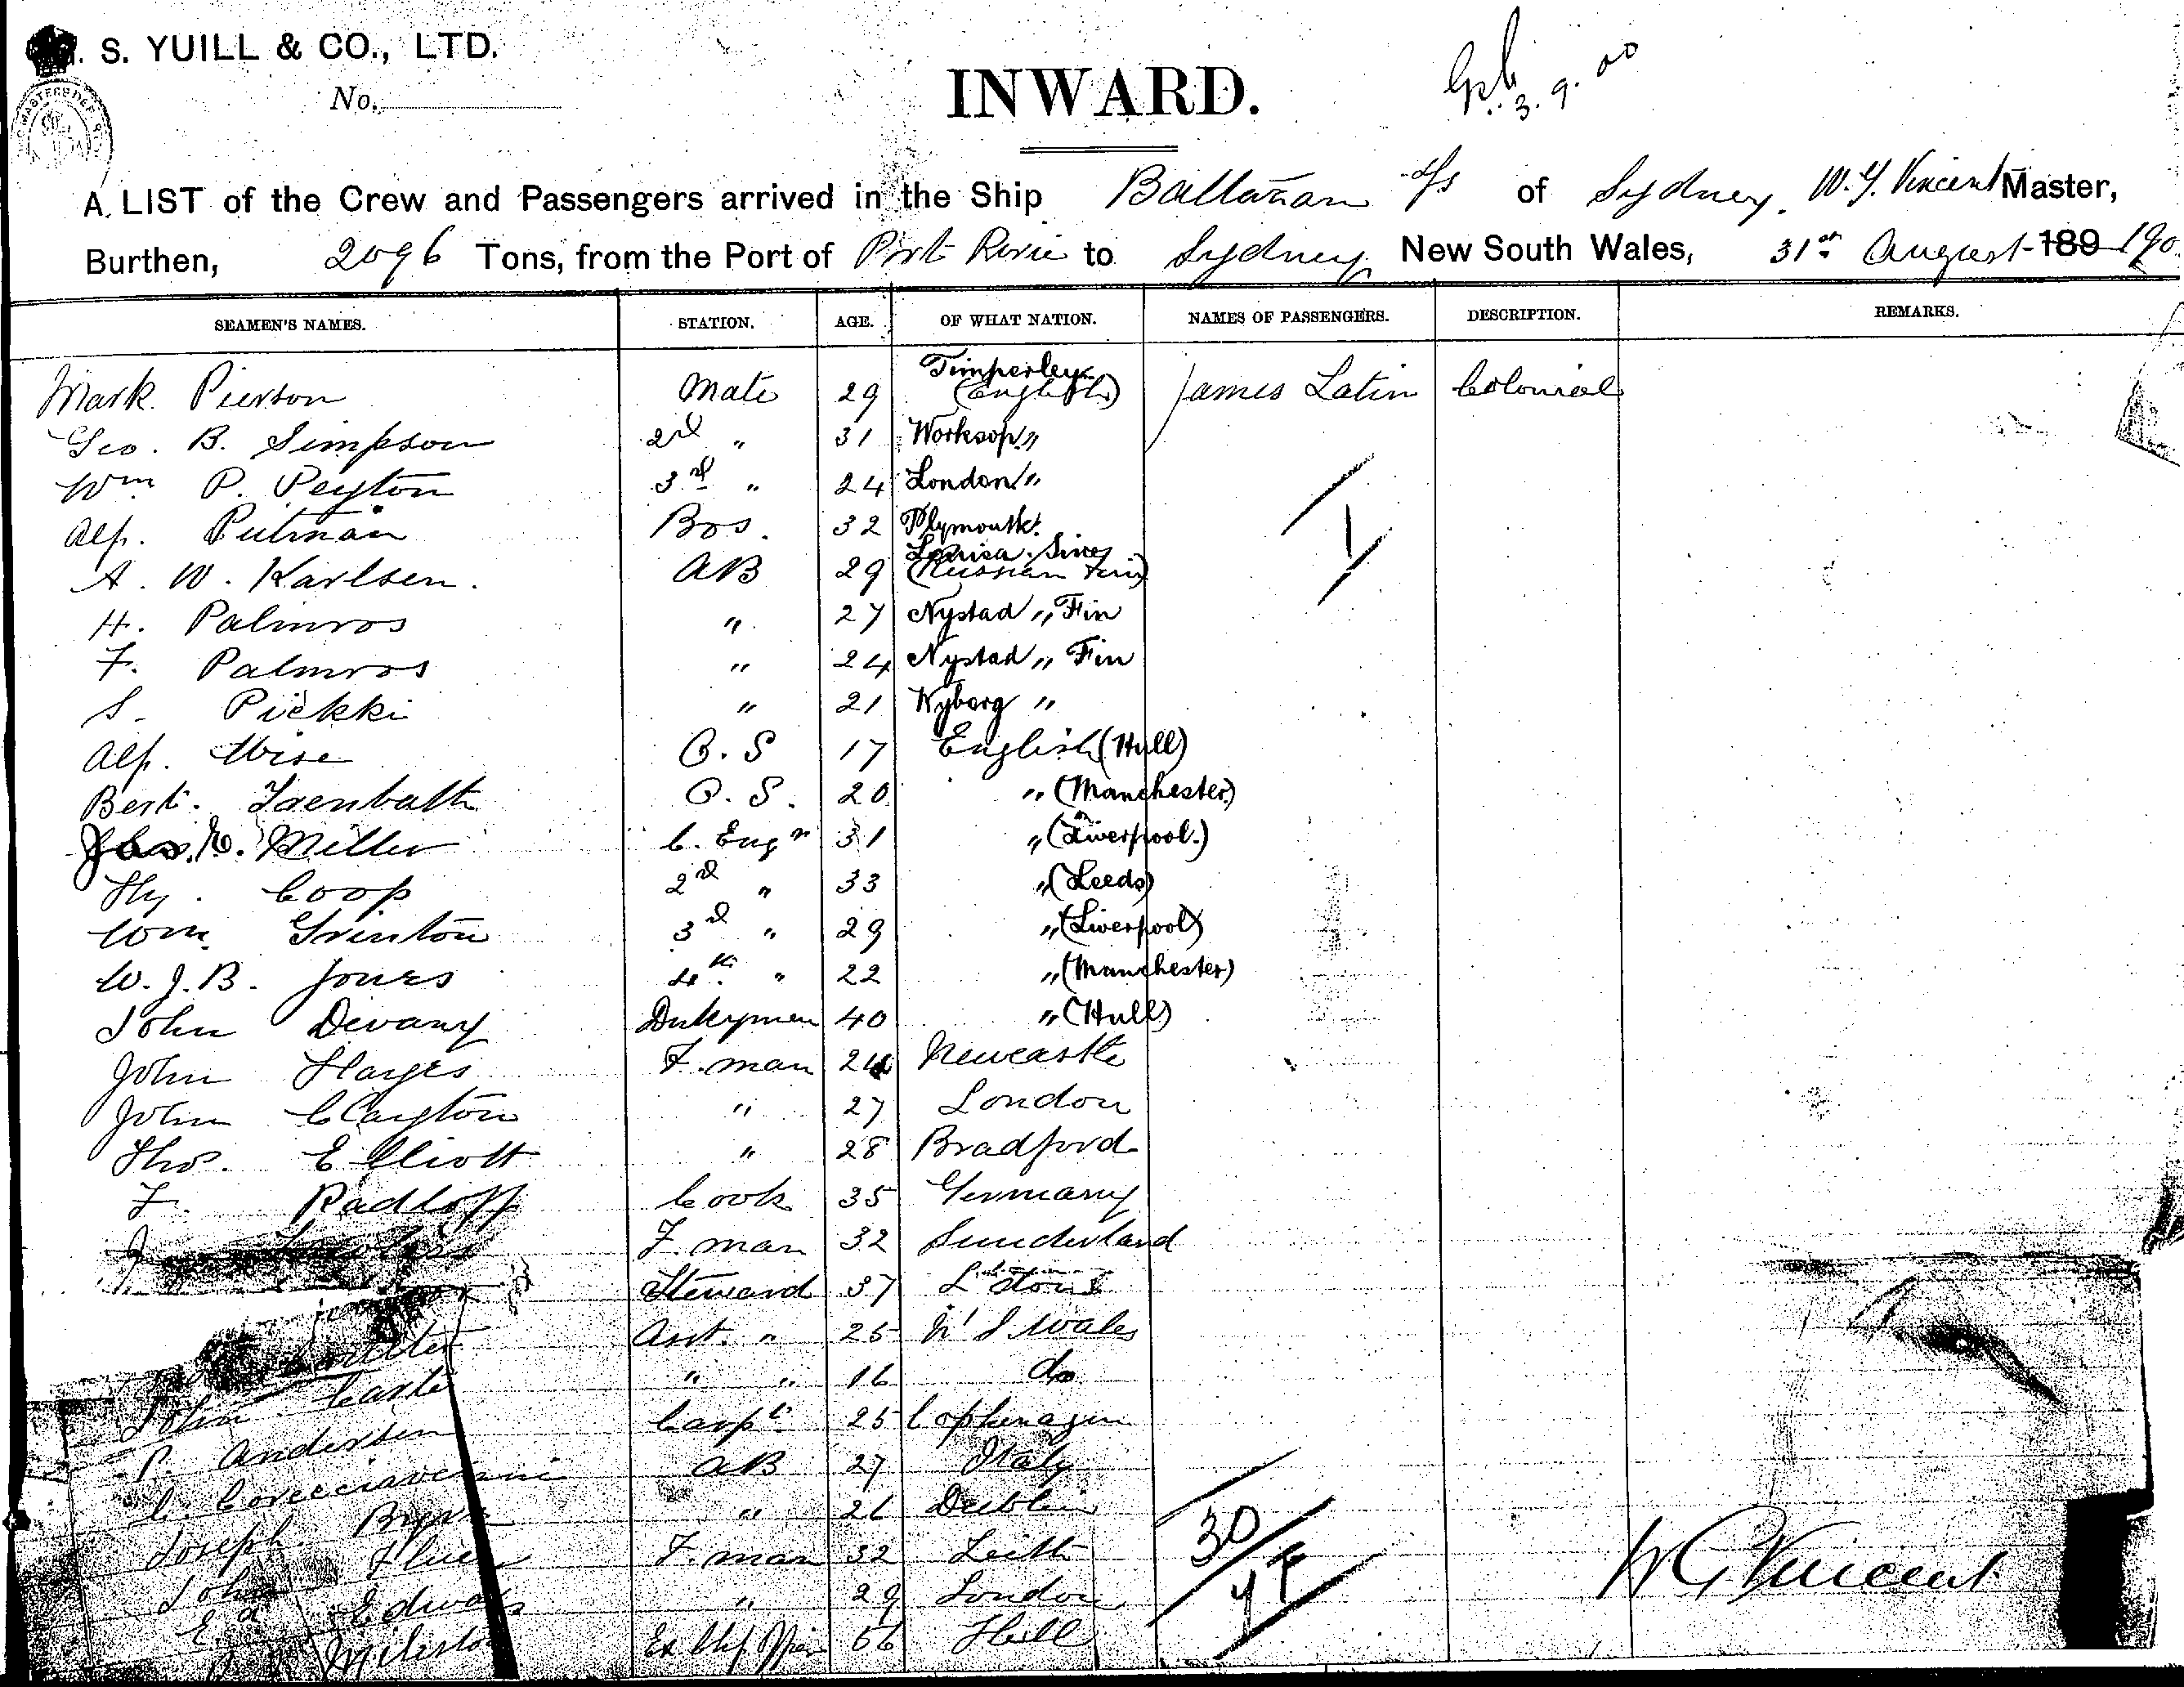 S. YUILL & CO., LTD.
No.
INWARD.
3.9.00
A LIST of the Crew and Passengers arrived in the Ship Ballaarat s/s of Sydney, W. G. Vincent Master,
Burthen, 2096 Tons, from the Port of Port Pirie to Sydney New South Wales, 31st August 189 190
SEAMEN'S NAMES. STATION. AGE. OF WHAT NATION. NAMES OF PASSENGERS. DESCRIPTION. REMARKS.
Mark Pierson Mate 29 Timperley (English) James Latin Colonial
Geo. B. Simpson 2nd " 31 Worksop "
Wm P. Peyton 3rd " 24 London "
Alf. Putman Bos. 32 Plymouth
A. W. Karlsen. AB 29 (Russian Fin)
H. Palmros " 27 Nystad " Fin
F. Palmros " 24 Nystad " Fin
S. Piekki " 21 Wyborg "
Alf. Wise O. S 17 English (Hull)
Bert. O. S. 20 " (Manchester)
Jas. E. Miller C. Engr 31 " (Liverpool.)
Hy. Coop 2nd " 33 " (Leeds)
Wm. Grinton 3rd " 29 " (Liverpool)
W. J. B. Jones 4th " 22 " (Manchester)
John Devany Dnkyman 40 " (Hull)
John Hayes F. man 24 Newcastle
John Clayton " 27 London
Thos. Elliott " 28 Bradford
F. Radloff Cook 35 Germany
J. F. man 32 Sunderland
Steward 37
Asst. " 25 N S Wales
John Carter " " 16 do
P. Andersen Carpr 25 Cophenagen
C. AB 27 Italy
Joseph Byrne " 26 Dublin
John F. man 32 Leith
Ed Edwards " 29 London
56 Hull
30
W G Vincent